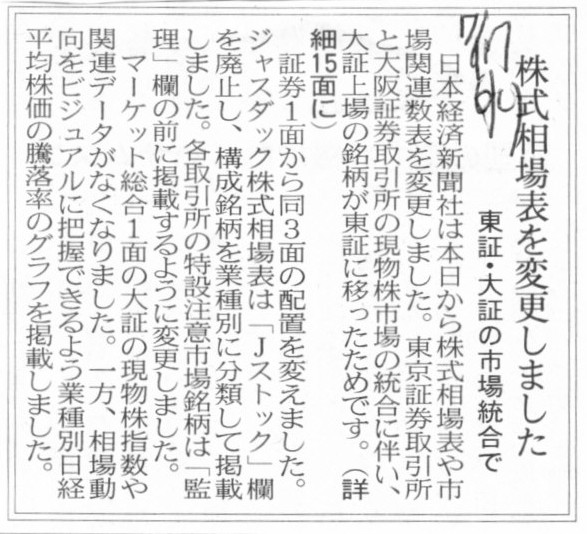 株式相場表を変更しました
東証・大証の市場統合で
日本経済新聞社は本日から株式相場表や市
場関連数表を変更しました。東京証券取引所
と大阪証券取引所の現物株市場の統合に伴い、
大証上場の銘柄が東証に移ったためです。（詳
細15面に）
証券1面から同3面の配置を変えました。
ジャスダック株式相場表は「Jストック」欄
を廃止し、構成銘柄を業種別に分類して掲載
しました。各取引所の特設注意市場銘柄は「監
理」欄の前に掲載するように変更しました。
マーケット総合1面の大証の現物株指数や
関連データがなくなりました。一方、相場動
向をビジュアルに把握できるよう業種別日経
平均株価の騰落率のグラフを掲載しました。
7/17